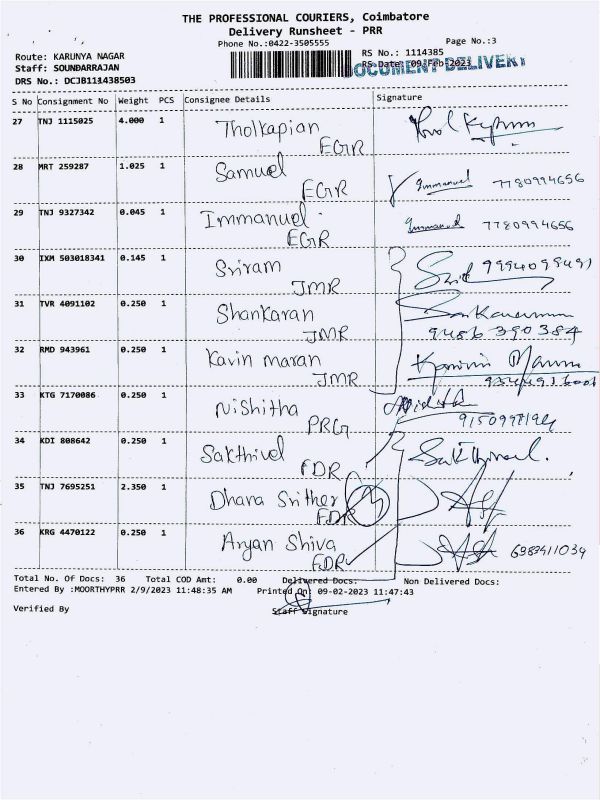 THE PROFESSIONAL COURIERS, Coimbatore
Delivery Runsheet - PRR
Phone No.:0422-3505555
Page No.:3
Route: KARUNYA NAGAR
RS No.: 1114385
Staff: SOUNDARRAJAN
RS Date: 09-Feb-2023
DOCUMENT DELIVERY
DRS No.: DCJB111438503
S No Consignment No Weight PCS Consignee Details Signature
27 TNJ 1115025 4.000 1 Tholkapian
EGR
28 MRT 259287 1.025 1 Samuel
EGR Immanuel 7780994656
29 TNJ 9327342 0.045 1 Immanuel
EGR Immanuel 7780994656
30 IXM 503018341 0.145 1 Sriram
JMR
31 TVR 4091102 0.250 1 Shankaran
JMR 9486390384
32 RMD 943961 0.250 1 Kavin maran
JMR
33 KTG 7170086 0.250 1 Nishitha
PRG
34 KDI 808642 0.250 1 Sakthivel
FDR
35 TNJ 7695251 2.350 1 Dhana Srither
FDR
36 KRG 4470122 0.250 1 Aryan Shiva
FDR
Total No. Of Docs: 36 Total COD Amt: 0.00 Delivered Docs: Non Delivered Docs:
Entered By :MOORTHYPRR 2/9/2023 11:48:35 AM Printed On: 09-02-2023 11:47:43
Verified By Staff Signature